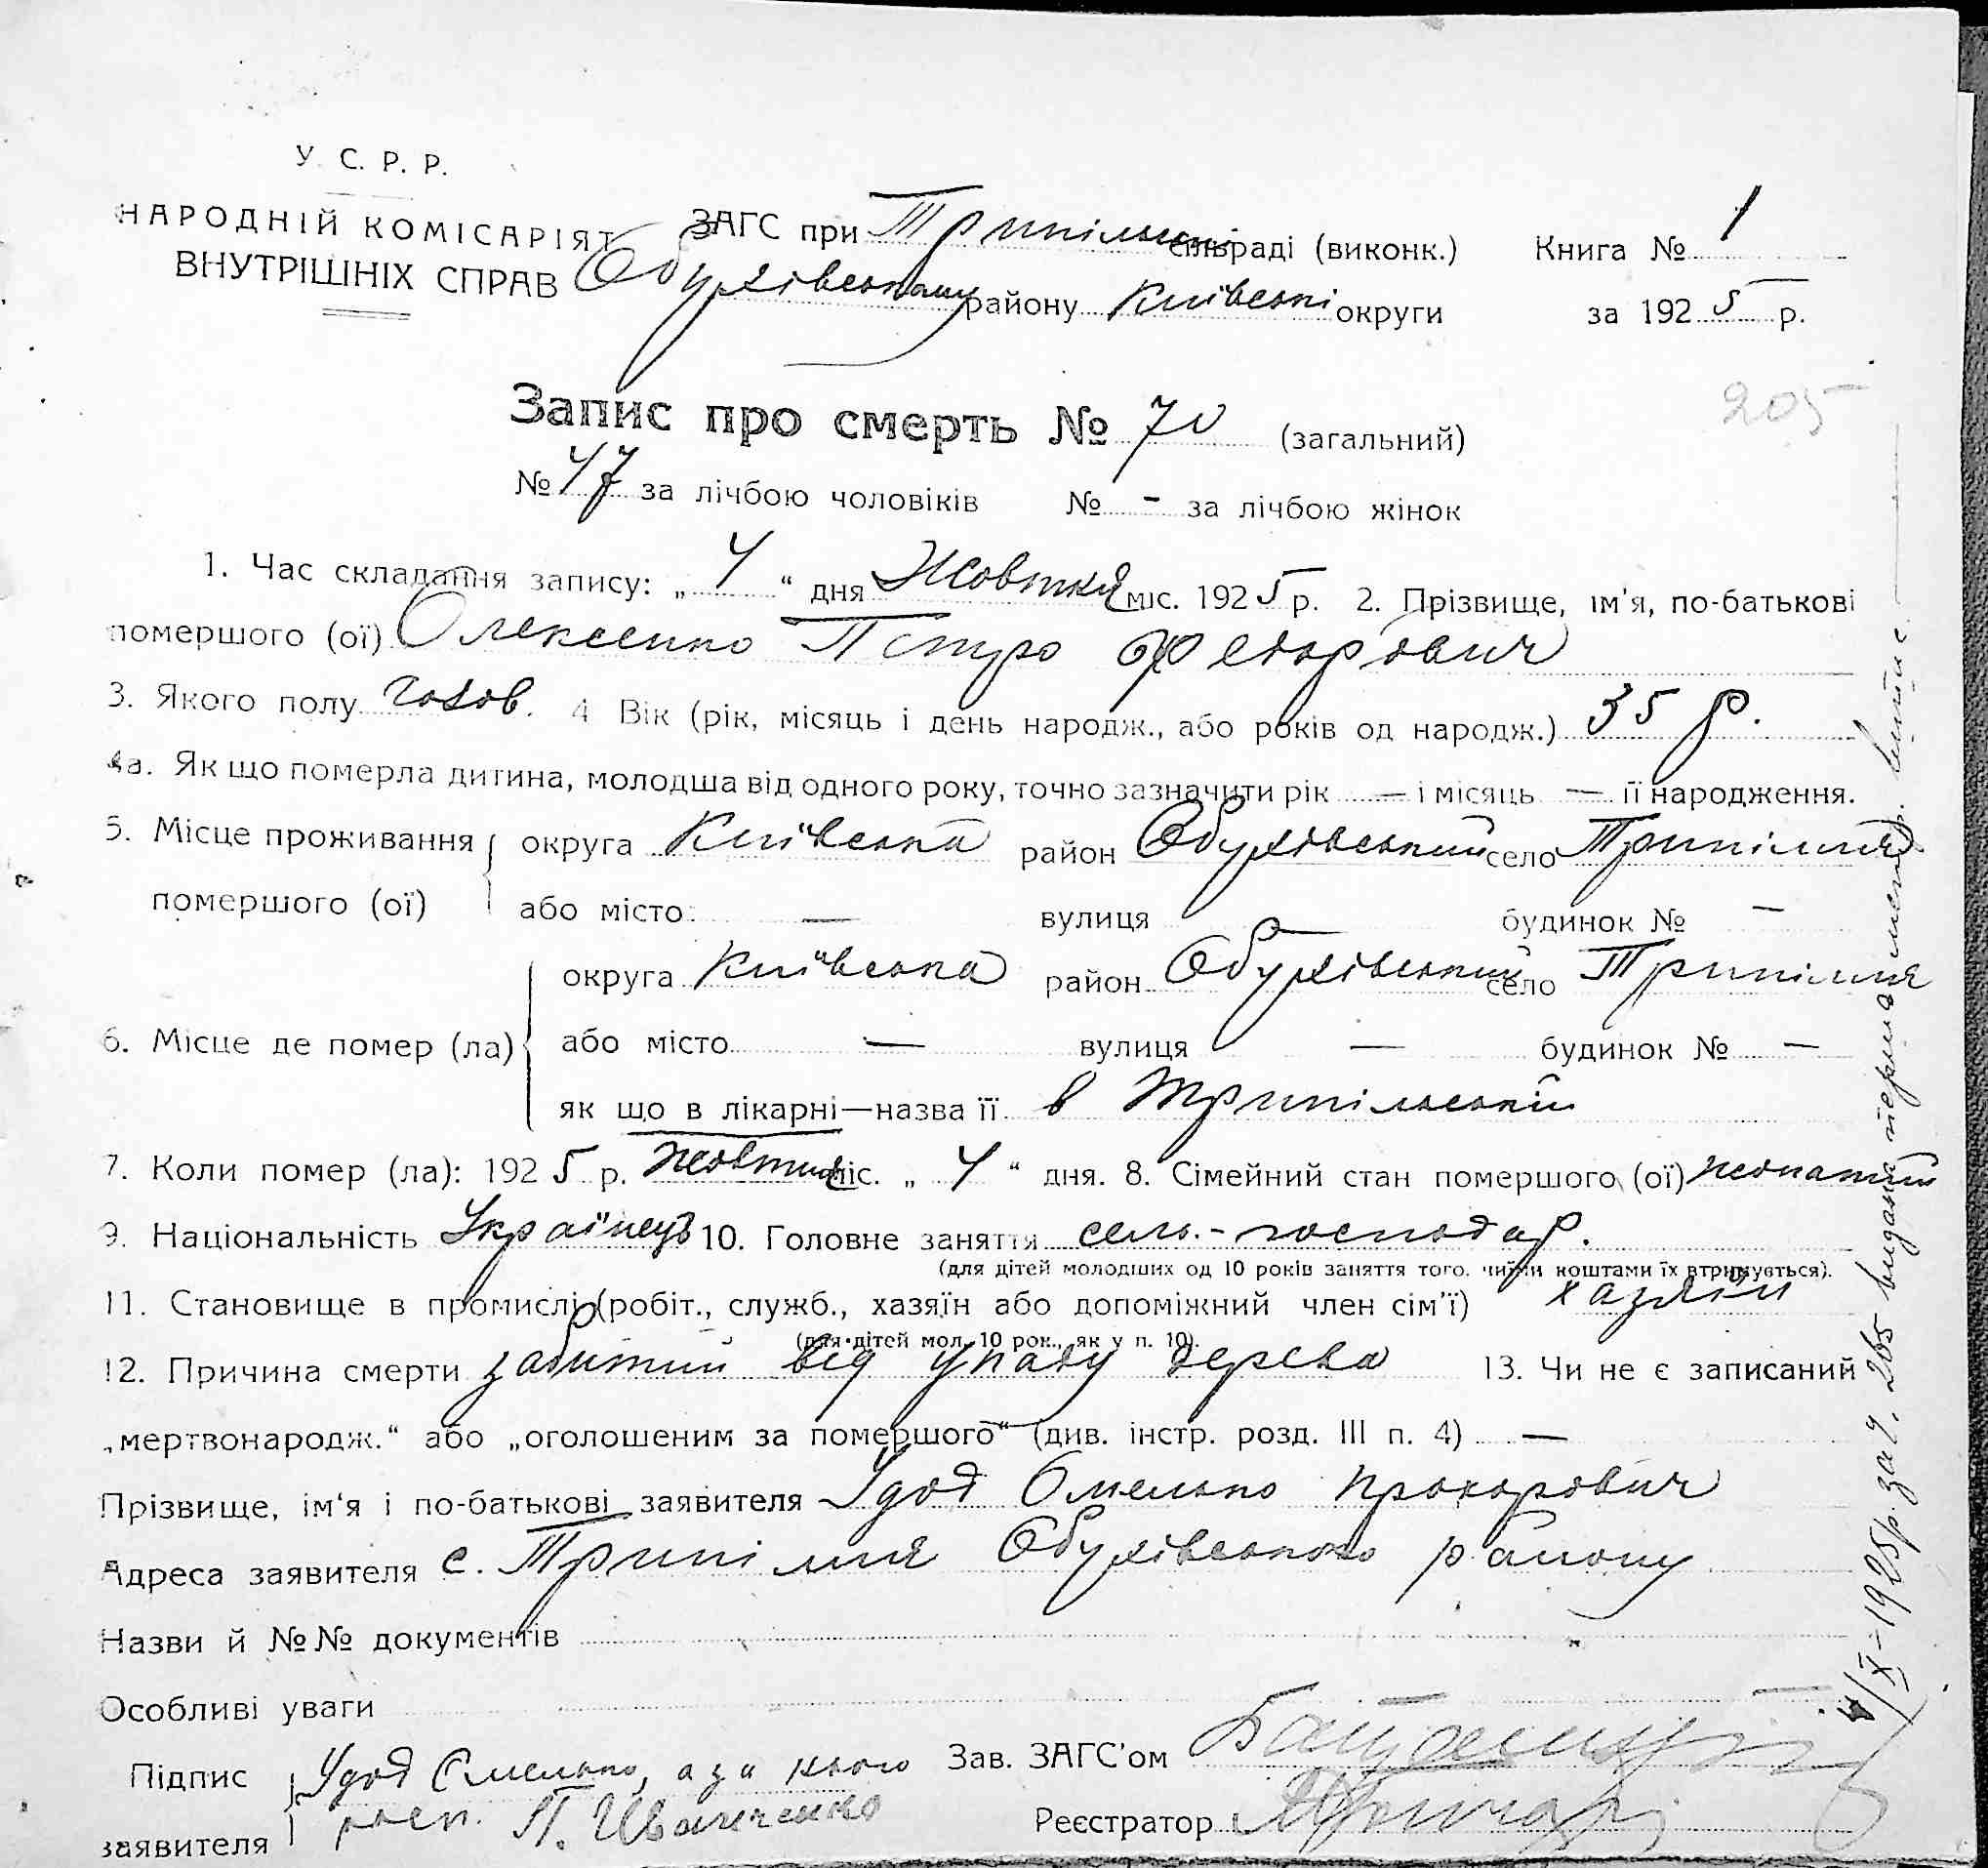 У. С. Р. Р.
НАРОДНІЙ КОМІСАРІЯТ
ВНУТРІШНІХ СПРАВ
ЗАГС при Трипільській сільраді (виконк.) Книга № 1
Обухівському району Київські округи за 1925 р.
205
Запис про смерть № 70 (загальний)
№ 47 за лічбою чоловіків № - за лічбою жінок
1. Час складання запису: „ 4 “ дня Жовтня міс. 1925 р. 2. Прізвище, ім'я, по-батькові
помершого (ої) Олексенко Петро Федорович
3. Якого полу чолов. 4 Вік (рік, місяць і день народж., або років од народж.) 35 р.
4а. Як що померла дитина, молодша від одного року, точно зазначити рік — і місяць — її народження.
5. Місце проживання округа Київська район Обухівський село Трипілля
помершого (ої) або місто: — вулиця — будинок № —
округа Київська район Обухівський село Трипілля
6. Місце де помер (ла) або місто — вулиця — будинок № —
як що в лікарні—назва її в Трипільській
7. Коли помер (ла): 1925 р. жовтня міс. „ 4 “ дня. 8. Сімейний стан помершого (ої) жонатий
9. Національність Українець 10. Головне заняття сель.-господар.
(для дітей молодших од 10 років заняття того, чиїми коштами їх втримується).
11. Становище в промислі (робіт., служб., хазяїн або допоміжний член сім'ї) хазяїн
(для дітей мол. 10 рок., як у п. 10).
12. Причина смерти забитий від упаду дерева 13. Чи не є записаний
„мертвонародж.“ або „оголошеним за помершого“ (див. інстр. розд. III п. 4) —
Прізвище, ім'я і по-батькові заявителя Удод Омелько Прохорович
Адреса заявителя с. Трипілля Обухівського району
Назви й №№ документів
Особливі уваги
Підпис Удод Омелько, а за нього Зав. ЗАГС'ом
заявителя росп. П. Иванченко Реєстратор
4/X-1925р. за ч. 265 видана